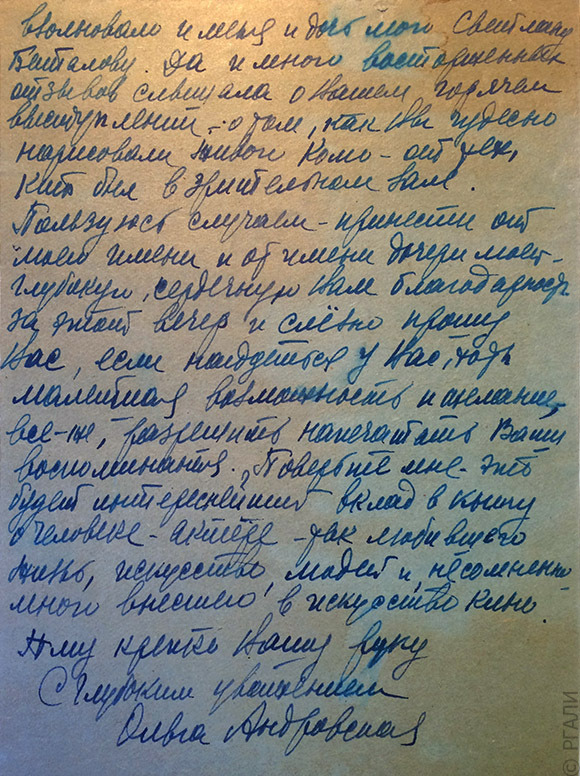 взволновало и меня и дочь мою Светлану
Баталову. Да и много восторженных
отзывов слышала о Вашем горячем
выступлении – о том, как Вы чудесно
нарисовали живой Колю – от тех,
кто был в зрительном зале.
Пользуюсь случаем – принести от
моего имени и от имени дочери моей –
глубокую, сердечную Вам благодарность
за этот вечер и слёзно прошу
Вас, если найдется у Вас, хоть
маленькая возможность и желание,
все-же, разрешить напечатать Ваши
воспоминания. Поверьте мне – это
будет интереснейший вклад в книгу
о человеке – актёре – так любившего
жизнь, искусство, людей и, несомненно
много внесшего в искусство кино.
Жму крепко Вашу руку
С глубоким уважением
Ольга Андровская
© РГАЛИ